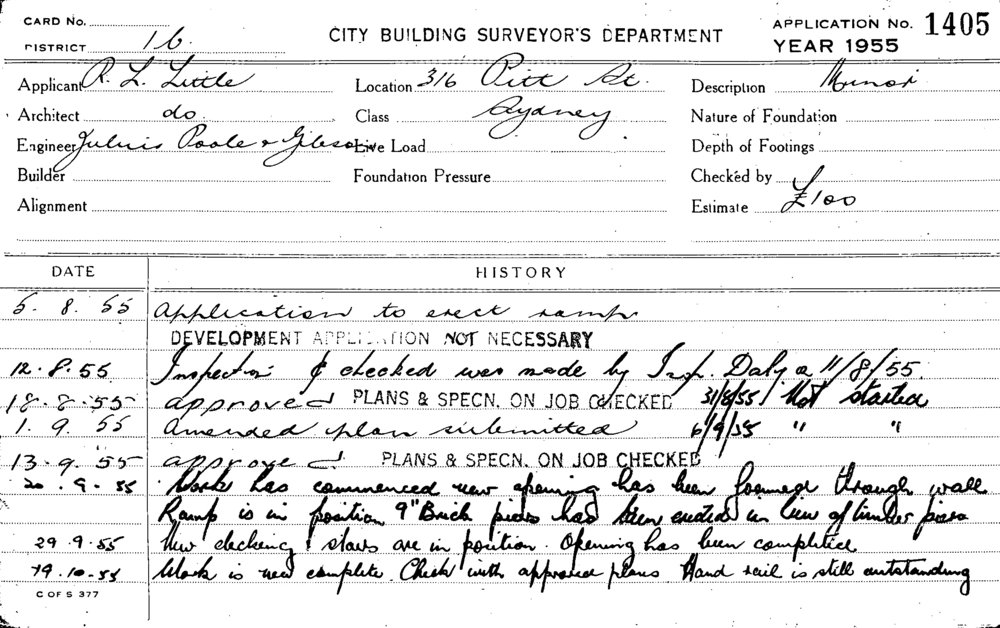 CARD No.
DISTRICT 16
CITY BUILDING SURVEYOR'S DEPARTMENT
APPLICATION No. 1405
YEAR 1955
Applicant R. L. Little
Location 316 Pitt St.
Description Minor
Architect do
Class Sydney
Nature of Foundation
Engineer Julius Poole & Gibson
Live Load
Depth of Footings
Builder
Foundation Pressure
Checked by
Alignment
Estimate £100
DATE HISTORY
5. 8. 55 Application to erect ramp
DEVELOPMENT APPLICATION NOT NECESSARY
12.8.55 Inspection & checked was made by Insp. Daly a 11/8/55.
18.8.55 approved PLANS & SPECN. ON JOB CHECKED 31/8/55 Not started
1. 9. 55 Amended plan submitted 6/9/55 " "
13.9.55 approved PLANS & SPECN. ON JOB CHECKED
20.9.55 Work has commenced new opening has been formed through wall
Ramp is in position 9" Brick piers has been erected in lieu of timber piers
29.9.55 New decking & stairs are in position. Opening has been completed
19.10.55 Work is now complete. Check with approved plans Hand rail is still outstanding
C OF S 377